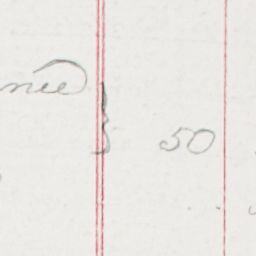 née
50